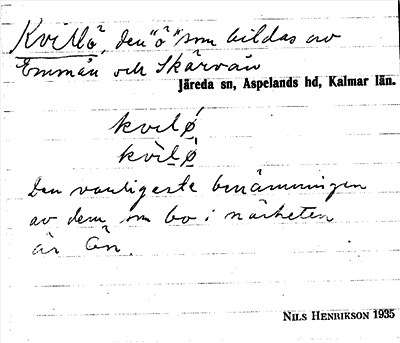 Kvillö, den "ö" som bildas av
Emmån och Skärvån
Järeda sn, Aspelands hd, Kalmar län.
kvilǿ
kvìlǿ
Den vanligaste benämningen
av dem som bo i närheten
är Ön.
NILS HENRIKSON 1935